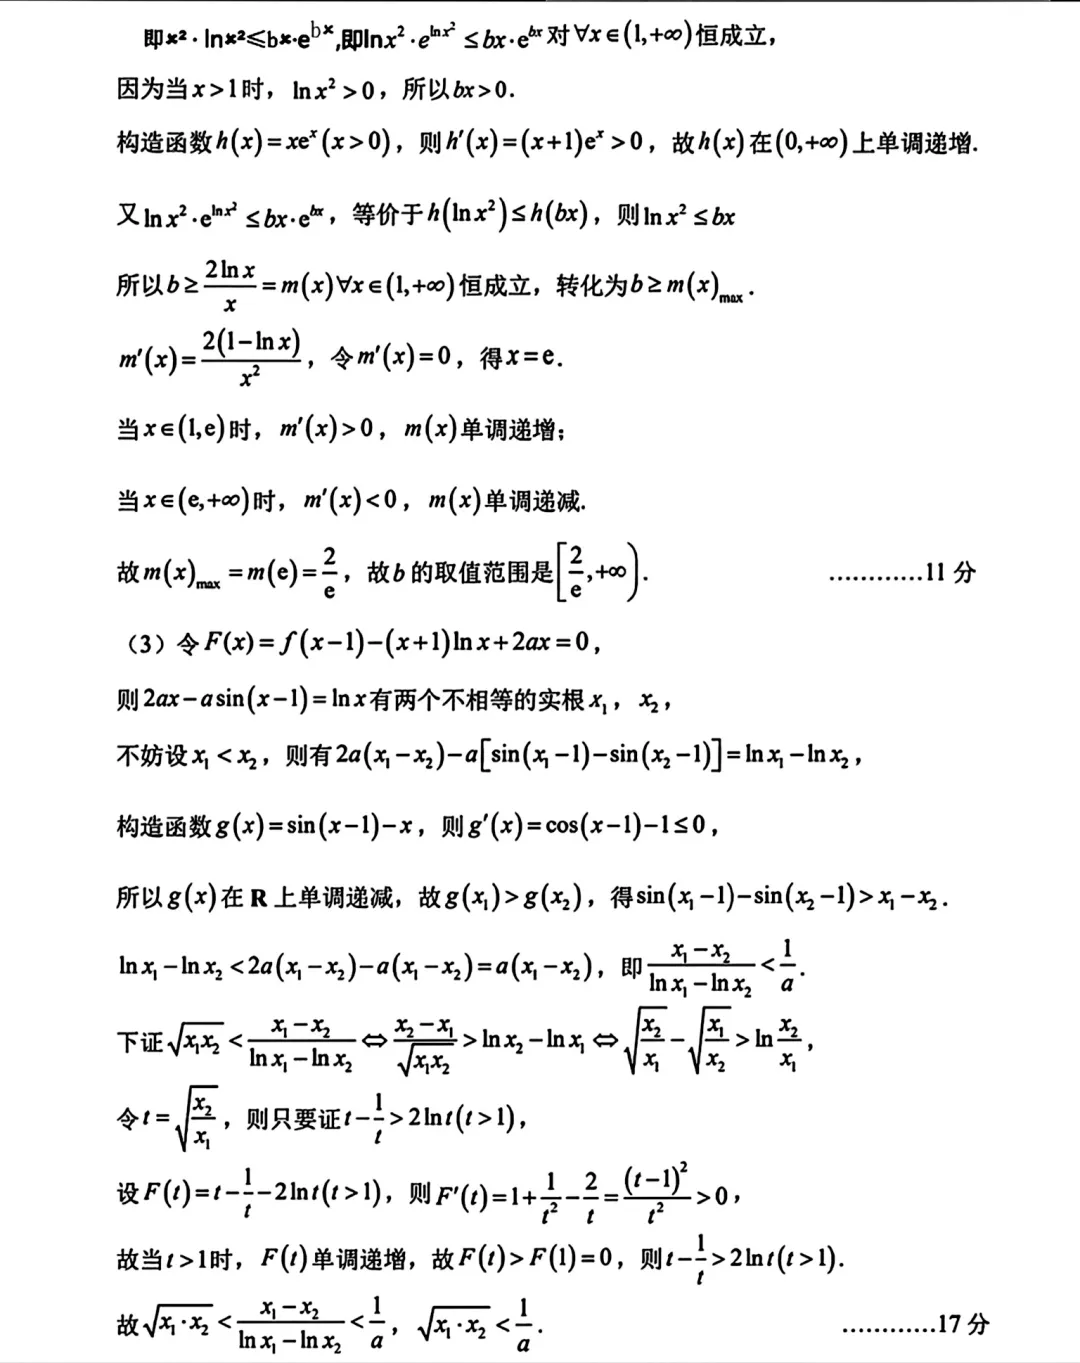 即x²·lnx²≤bx·e^{bx},即lnx²·e^{lnx²}≤bx·e^{bx}对∀x∈(1,+∞)恒成立，
因为当x>1时，lnx²>0，所以bx>0.
构造函数h(x)=xe^x(x>0)，则h′(x)=(x+1)e^x>0，故h(x)在(0,+∞)上单调递增.
又lnx²·e^{lnx²}≤bx·e^{bx}，等价于h(lnx²)≤h(bx)，则lnx²≤bx
所以b≥\frac{2lnx}{x}=m(x)∀x∈(1,+∞)恒成立，转化为b≥m(x)_{max}.
m′(x)=\frac{2(1-lnx)}{x²}，令m′(x)=0，得x=e.
当x∈(1,e)时，m′(x)>0，m(x)单调递增；
当x∈(e,+∞)时，m′(x)<0，m(x)单调递减.
故m(x)_{max}=m(e)=\frac{2}{e}，故b的取值范围是[\frac{2}{e},+∞). …………11分
（3）令F(x)=f(x-1)-(x+1)lnx+2ax=0，
则2ax-asin(x-1)=lnx有两个不相等的实根x₁，x₂，
不妨设x₁<x₂，则有2a(x₁-x₂)-a[sin(x₁-1)-sin(x₂-1)]=lnx₁-lnx₂，
构造函数g(x)=sin(x-1)-x，则g′(x)=cos(x-1)-1≤0，
所以g(x)在R上单调递减，故g(x₁)>g(x₂)，得sin(x₁-1)-sin(x₂-1)>x₁-x₂.
lnx₁-lnx₂<2a(x₁-x₂)-a(x₁-x₂)=a(x₁-x₂)，即\frac{x₁-x₂}{lnx₁-lnx₂}<\frac{1}{a}.
下证\sqrt{x₁x₂}<\frac{x₁-x₂}{lnx₁-lnx₂}⇔\frac{x₂-x₁}{\sqrt{x₁x₂}}>lnx₂-lnx₁⇔\sqrt{\frac{x₂}{x₁}}-\sqrt{\frac{x₁}{x₂}}>ln\frac{x₂}{x₁}，
令t=\sqrt{\frac{x₂}{x₁}}，则只要证t-\frac{1}{t}>2lnt(t>1)，
设F(t)=t-\frac{1}{t}-2lnt(t>1)，则F′(t)=1+\frac{1}{t²}-\frac{2}{t}=\frac{(t-1)²}{t²}>0，
故当t>1时，F(t)单调递增，故F(t)>F(1)=0，则t-\frac{1}{t}>2lnt(t>1).
故\sqrt{x₁·x₂}<\frac{x₁-x₂}{lnx₁-lnx₂}<\frac{1}{a}，\sqrt{x₁·x₂}<\frac{1}{a}. …………17分